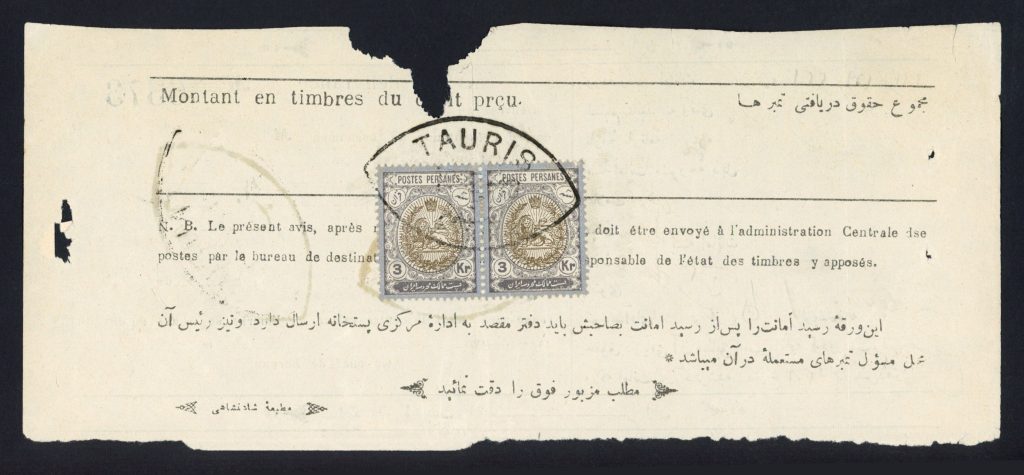 Montant en timbres du prçu.
مجموع حقوق دریافتی تمبر ها
TAURIS
POSTES PERSANES POSTES PERSANES
N. B. Le présent avis, après doit étre envoyé à l'administration Centrale dse
postes par le bureau de destinat sponsable de l'état des timbres y apposés.
3 Kr 3 Kr
پست ممالک محروسه ایران پست ممالک محروسه ایران
این ورقهٔ رسید امانت را پس از رسید امانت بصاحبش باید دفتر مقصد به ادارهٔ مرکزی پستخانه ارسال دارد ونیز رئیس آن
محل مسؤل تمبرهای مستعملهٔ در آن میباشد *
مطلب مزبور فوق را دقت نمائید
مطبعهٔ شاهنشاهی